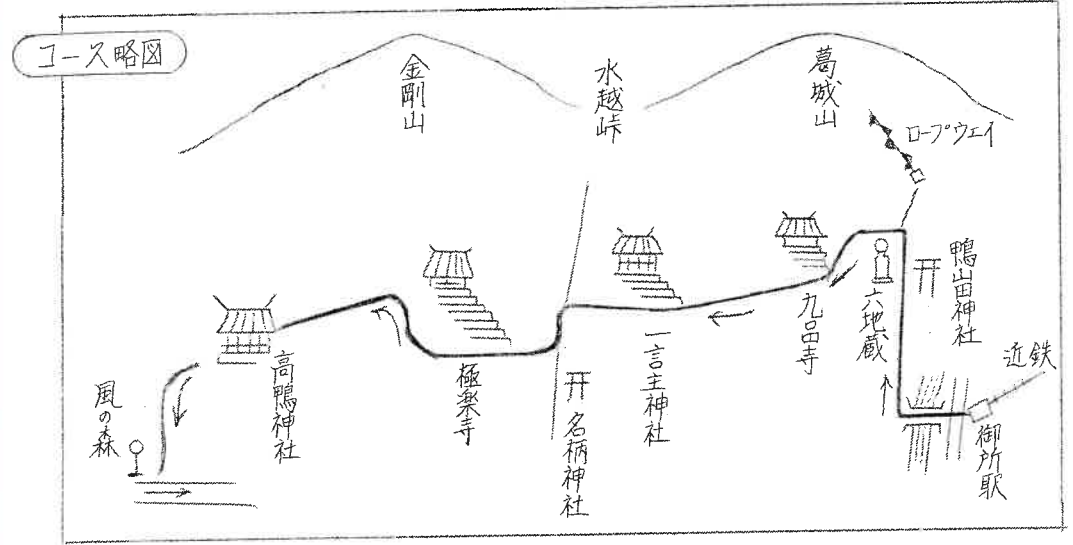 コース略図
金剛山
水越峠
葛城山
ロープウェイ
鴨山田神社
六地蔵
九品寺
近鉄
御所駅
一言主神社
名柄神社
極楽寺
高鴨神社
風の森